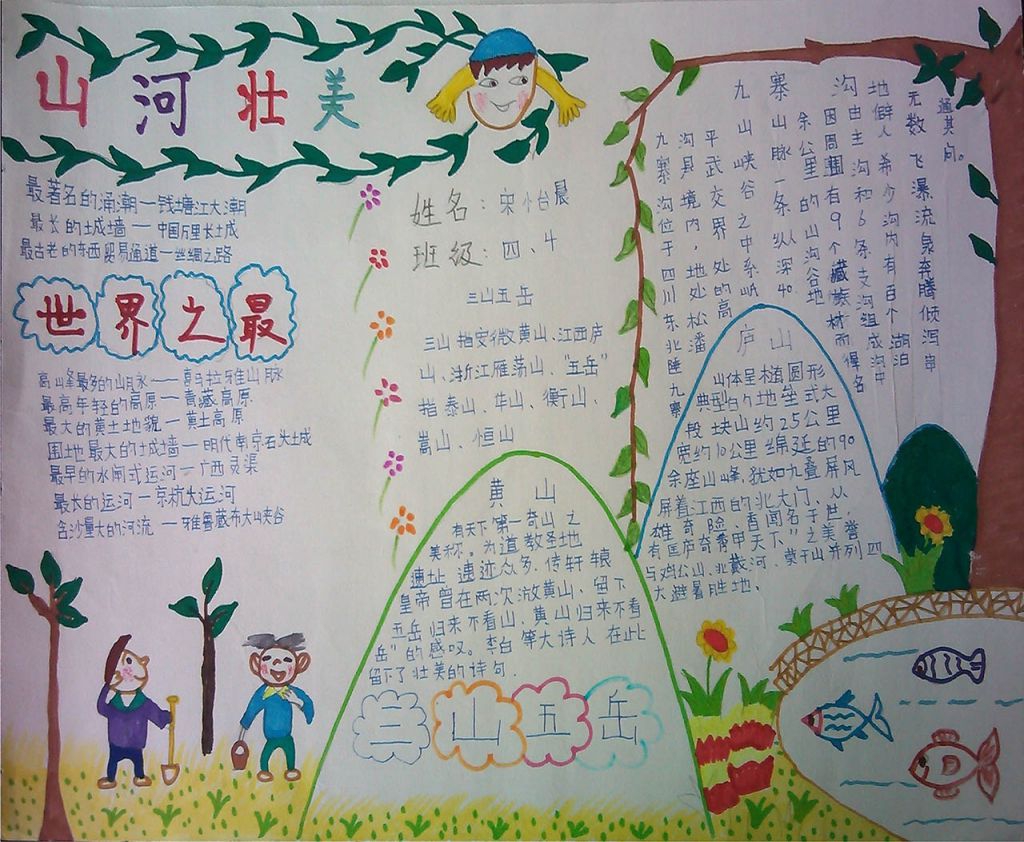 山河壮美
最著名的涌潮—钱塘江大潮
最长的城墙—中国万里长城
最古老的东西贸易通道—丝绸之路
世界之最
高山峰最多的山脉——喜马拉雅山脉
最高年轻的高原—青藏高原
最大的黄土地貌—黄土高原
围地最大的城墙—明代南京石头城
最早的水闸式运河—广西灵渠
最大的运河—京杭大运河
含沙量大的河流—雅鲁藏布大峡谷
姓名：宋怡晨
班级：四、4
三山五岳
三山指安微黄山、江西庐
山、浙江雁荡山、“五岳”
指泰山、华山、衡山、
嵩山、恒山
黄山
有天下第一奇山之
美称。为道教圣地
遗址遗迹众多，传轩辕
皇帝曾在两次放黄山、留下
五岳归来不看山、黄山归来不看
岳”的感叹。李白等大诗人在此
留下了壮美的诗句．
三山五岳
九寨沟
九寨沟位于四川东北睡九寨
沟县境内，地处松潘
平武交界处的高
山峡谷之中系岷
山脉一条纵深40．
余公里的山沟谷地
因周围有9个藏族村而得名
由主沟和6条支沟组成沟中
地僻人希少沟内有百个湖泊
无数飞瀑流泉奔腾倾泻串
通其间。
庐山
山体呈椭圆形
典型的地垒式大
段块山约25公里
宽约10公里绵延的90
余座山峰，犹如九叠屏风
屏着江西的北大门、从
雄奇险、秀闻名于世，
有匡庐奇秀甲天下”之美誉
与鸡公山、北戴河、莫干山并列四
大避暑胜地．